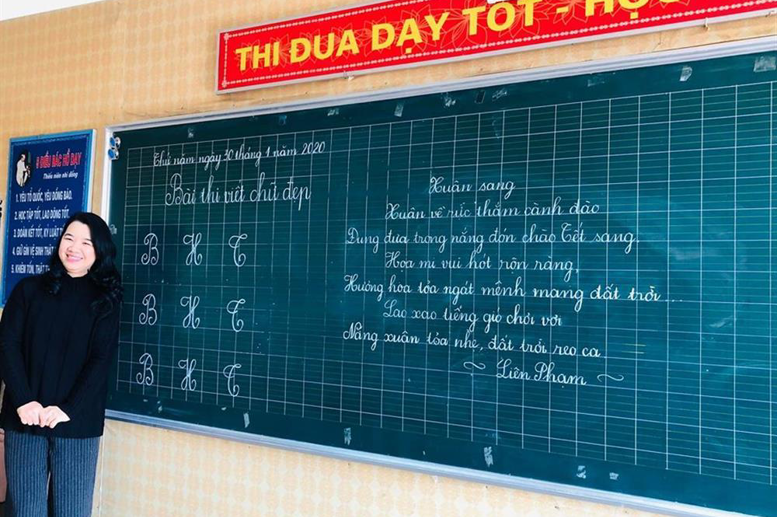 THI ĐUA DẠY TỐT - HỌC
5 ĐIỀU BÁC HỒ DẠY
Thiếu niên nhi đồng
1. YÊU TỔ QUỐC, YÊU ĐỒNG BÀO.
2. HỌC TẬP TỐT, LAO ĐỘNG TỐT.
3. ĐOÀN KẾT TỐT, KỶ LUẬT
4. GIỮ GÌN VỆ SINH THẬT
5. KHIÊM TỐN, THẬT
Thứ năm ngày 30 tháng 1 năm 2020
Bài thi viết chữ đẹp
B H T
B H T
B H T
Xuân sang
Xuân về rực thắm cành đào
Đung đưa trong nắng đón chào Tết sang.
Họa mi vui hót rộn ràng,
Hương hoa tỏa ngát mênh mang đất trời...
Lao xao tiếng gió chơi vơi
Nắng xuân tỏa nhẹ, đất trời reo ca
~ Liên Phạm ~